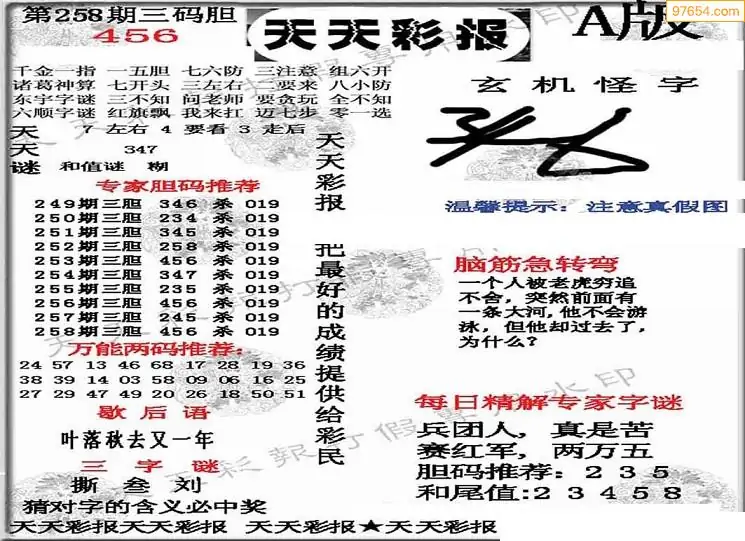 第258期三码胆
456
天天彩报
A版
97654.com
千金一指 一五胆 七六防 三注意 组六开
诸葛神算 七开头 三左右 二要来 八小防
东宇字谜 三不知 问老师 要贪玩 全不知
六顺字谜 红旗飘 我来扛 迈七步 零一选
天 7 左右 4 要看 3 走后
天 347
谜 和值谜 糊
专家胆码推荐
249期三胆 346 杀 019
250期三胆 234 杀 019
251期三胆 345 杀 019
252期三胆 258 杀 019
253期三胆 456 杀 019
254期三胆 347 杀 019
255期三胆 235 杀 019
256期三胆 456 杀 019
257期三胆 245 杀 019
258期三胆 456 杀 019
万能两码推荐:
24 57 13 46 68 17 28 19 36
38 39 14 03 58 09 06 16 25
27 29 47 49 20 26 18 50 51
歇后语
叶落秋去又一年
三字谜
撕 叁 刘
猜对字的含义必中奖
天天彩报天天彩报 天天彩报★天天彩报
天天彩报 把最好的成绩提供给彩民
玄机怪字
温馨提示：注意真假图
脑筋急转弯
一个人被老虎穷追
不舍，突然前面有
一条大河,他不会游
泳，但他却过去了,
为什么?
每日精解专家字谜
兵团人，真是苦
赛红军，两万五
胆码推荐：2 3 5
和尾值:2 3 4 5 8